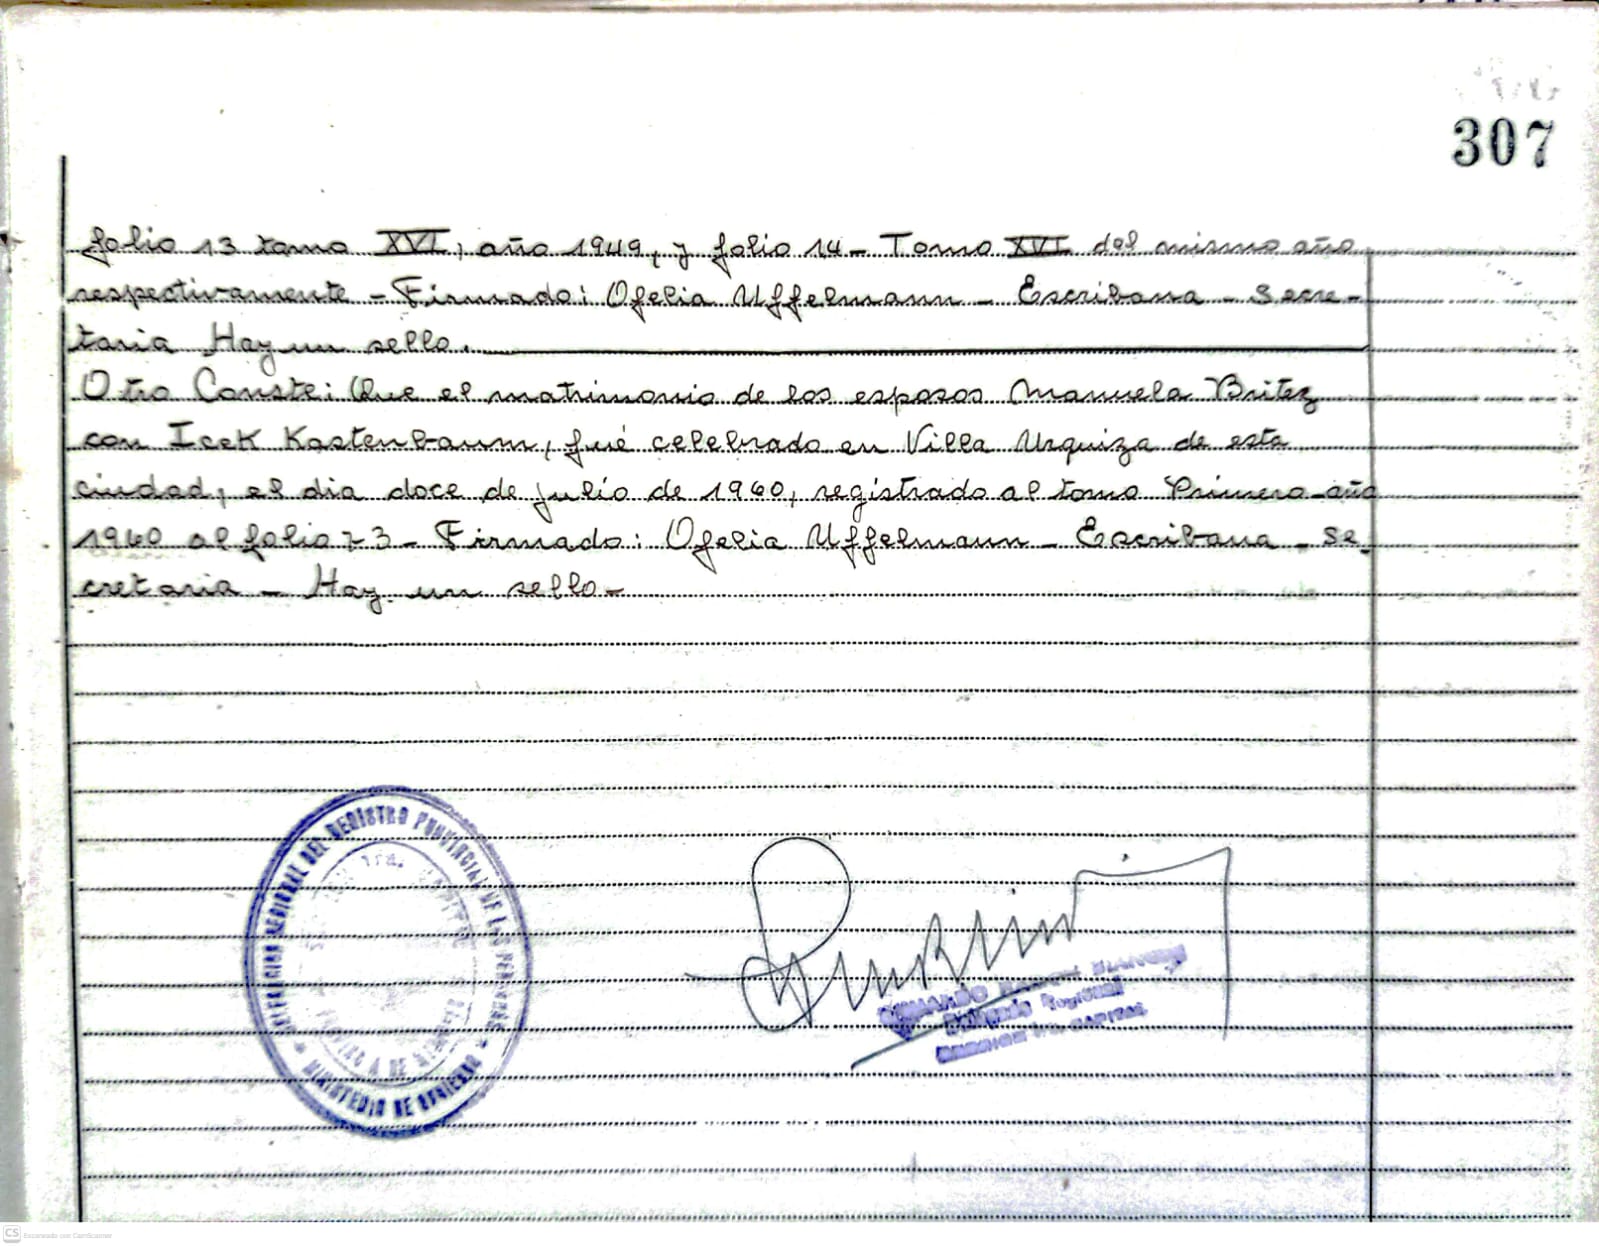 307
folio 13 tomo XVI, año 1949, y folio 14 - Tomo XVI del mismo año
respectivamente - Firmado: Ofelia Uffelmann - Escribana - Secre-
taria Hay un sello.
Otro Conste: Que el matrimonio de los esposos Manuela Britez
con Icek Kastenbaum, fué celebrado en Villa Urquiza de esta
ciudad, el dia doce de julio de 1960, registrado al tomo Primero - año
1960 al folio 73 - Firmado: Ofelia Uffelmann - Escribana - Se-
cretaria - Hay un sello -
REGIONAL DEL REGISTRO PROVINCIAL DE LAS PERSONAS
MINISTERIO DE GOBIERNO
Regional
CAPITAL
CS Escaneado con CamScanner